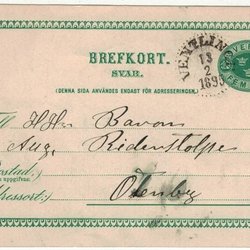 BREFKORT.
SVAR.
(DENNA SIDA ANVÄNDES ENDAST FÖR ADRESSERINGEN.)
VENTLIN
13
2
1895
FEM
Till H Herr Baron
Aug. Ridderstolpe
Bostad:
uppgifves.
Adressort:
Ottenby